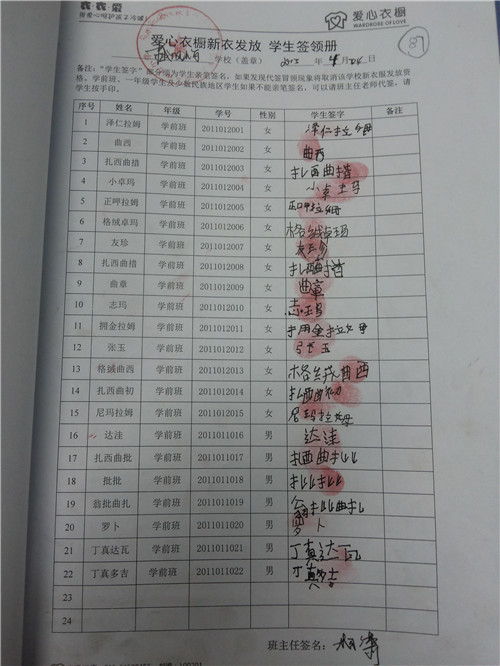 衣衣衆
爱心衣橱
WARDROBE OF LOVE
87
爱心衣橱新衣发放 学生签领册
学校（盖章） 2013 年 4 月 24
备注："学生签字"部分需为学生亲笔签名，如果发现代签冒领现象将取消该学校新衣服发放资
格，学前班、一年级学生及少数民族地区学生如果不能亲笔签名，可以请班主任老师代签，请学
生按手印。
序号 姓名 年级 学号 性别 学生签字 备注
1 泽仁拉姆 学前班 2011012001 女 泽仁拉姆
2 曲西 学前班 2011012002 女 曲西
3 扎西曲措 学前班 2011012003 女 扎西曲措
4 小卓玛 学前班 2011012004 女 小卓玛
5 正呷拉姆 学前班 2011012005 女 正呷拉姆
6 格绒卓玛 学前班 2011012006 女 格绒卓玛
7 友珍 学前班 2011012007 女 友珍
8 扎西曲措 学前班 2011012008 女 扎西曲措
9 曲章 学前班 2011012009 女 曲章
10 志玛 学前班 2011012010 女 志玛
11 拥金拉姆 学前班 2011012011 女 拥金拉姆
12 张玉 学前班 2011012012 女 张玉
13 格绒曲西 学前班 2011012013 女 格绒曲西
14 扎西曲初 学前班 2011012014 女 扎西曲初
15 尼玛拉姆 学前班 2011012015 女 尼玛拉姆
16 达洼 学前班 2011011016 男 达洼
17 扎西曲批 学前班 2011011017 男 扎西曲批
18 批批 学前班 2011011018 男 批批
19 翁批曲扎 学前班 2011011019 男 翁批曲扎
20 罗卜 学前班 2011011020 男 罗卜
21 丁真达瓦 学前班 2011011021 男 丁真达瓦
22 丁真多吉 学前班 2011011022 男 丁真多吉
23
24
班主任签名：